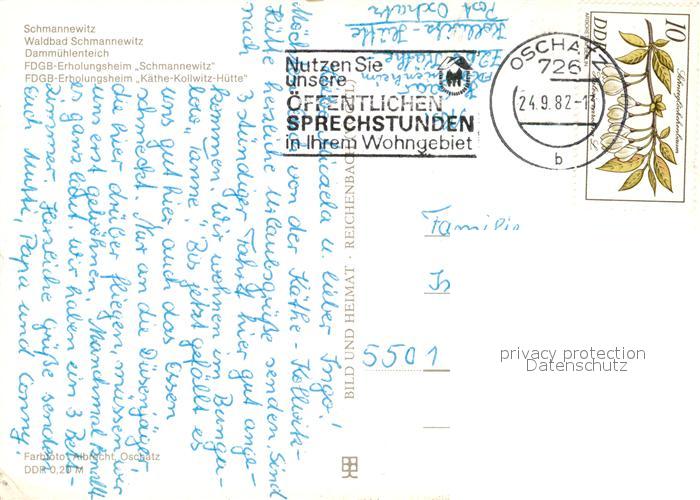 Schmannewitz
Waldbad Schmannewitz
Dammühlenteich
FDGB-Erholungsheim „Schmannewitz"
FDGB-Erholungsheim „Käthe-Kollwitz-Hütte"
Michaela u. lieber Ingo!
von der Käthe-Kollwitz-
Hütte herzliche Urlaubsgrüße senden. Sind
nach stündiger Fahrt hier gut ange-
kommen. Wir wohnen im Bunga-
low „Tanne". Bis jetzt gefällt es
uns gut hier, auch das Essen
schmeckt. Nur an die Düsenjäger,
die hier drüber fliegen, müssen wir
uns erst gewöhnen. Manchmal knallt
es ganz wir haben ein 3 Bett-
zimmer. Herzliche Grüße senden
Euch Mutti, Papa und Conny.
Kollwitz-Hütte
Post Oschatz
Nutzen Sie
unsere
ÖFFENTLICHEN
SPRECHSTUNDEN
in Ihrem Wohngebiet
OSCHATZ
726
24.9.82-1
b
10
DDR
Familie
5501
BILD UND HEIMAT · REICHENBACH
privacy protection
Datenschutz
Farbfoto: Albrecht, Oschatz
DDR 0,20 M